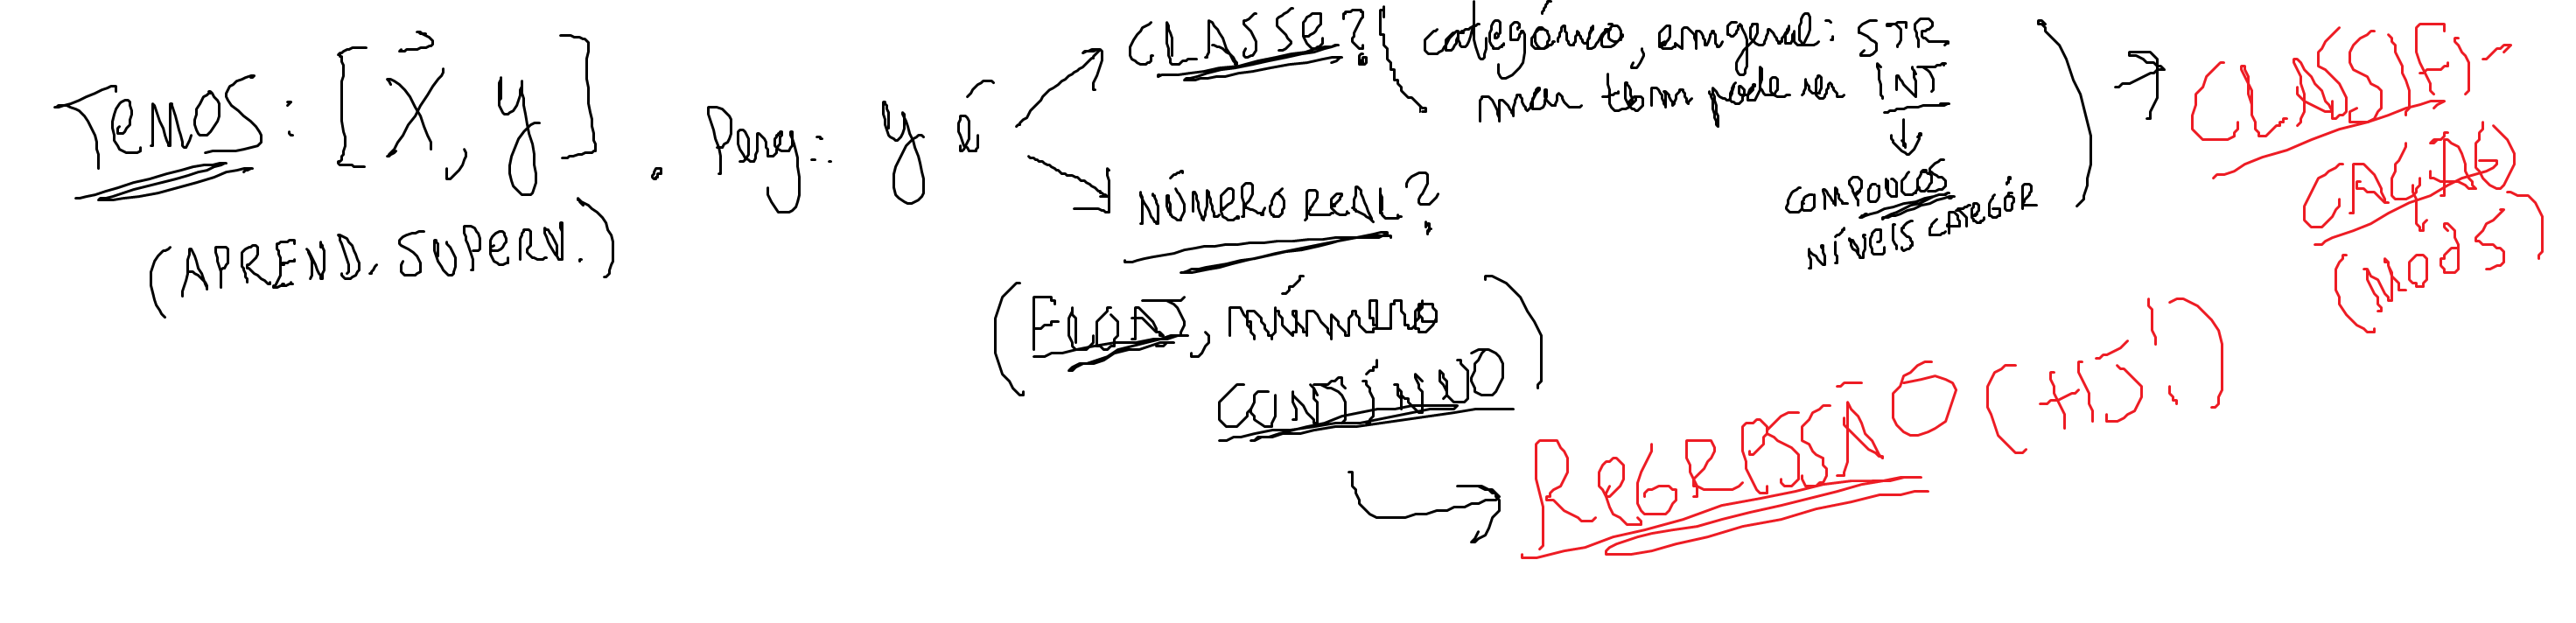 TEMOS: [X⃗, y]. Perg: y é
(APREND. SUPERV.)
CLASSE? (categórico, em geral: STR
mas tbm pode ser INT
↓
COM POUCOS
NÍVEIS CATEGÓR)
→ CLASSIFI-
CAÇÃO
(MOD5)
NÚMERO REAL?
(FLOAT, número
CONTÍNUO)
→ REGRESSÃO (HJ!)